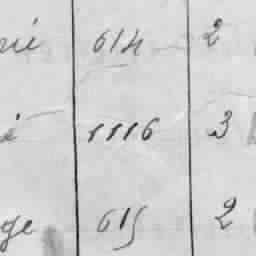 614 2
1116 3
ge 615 2